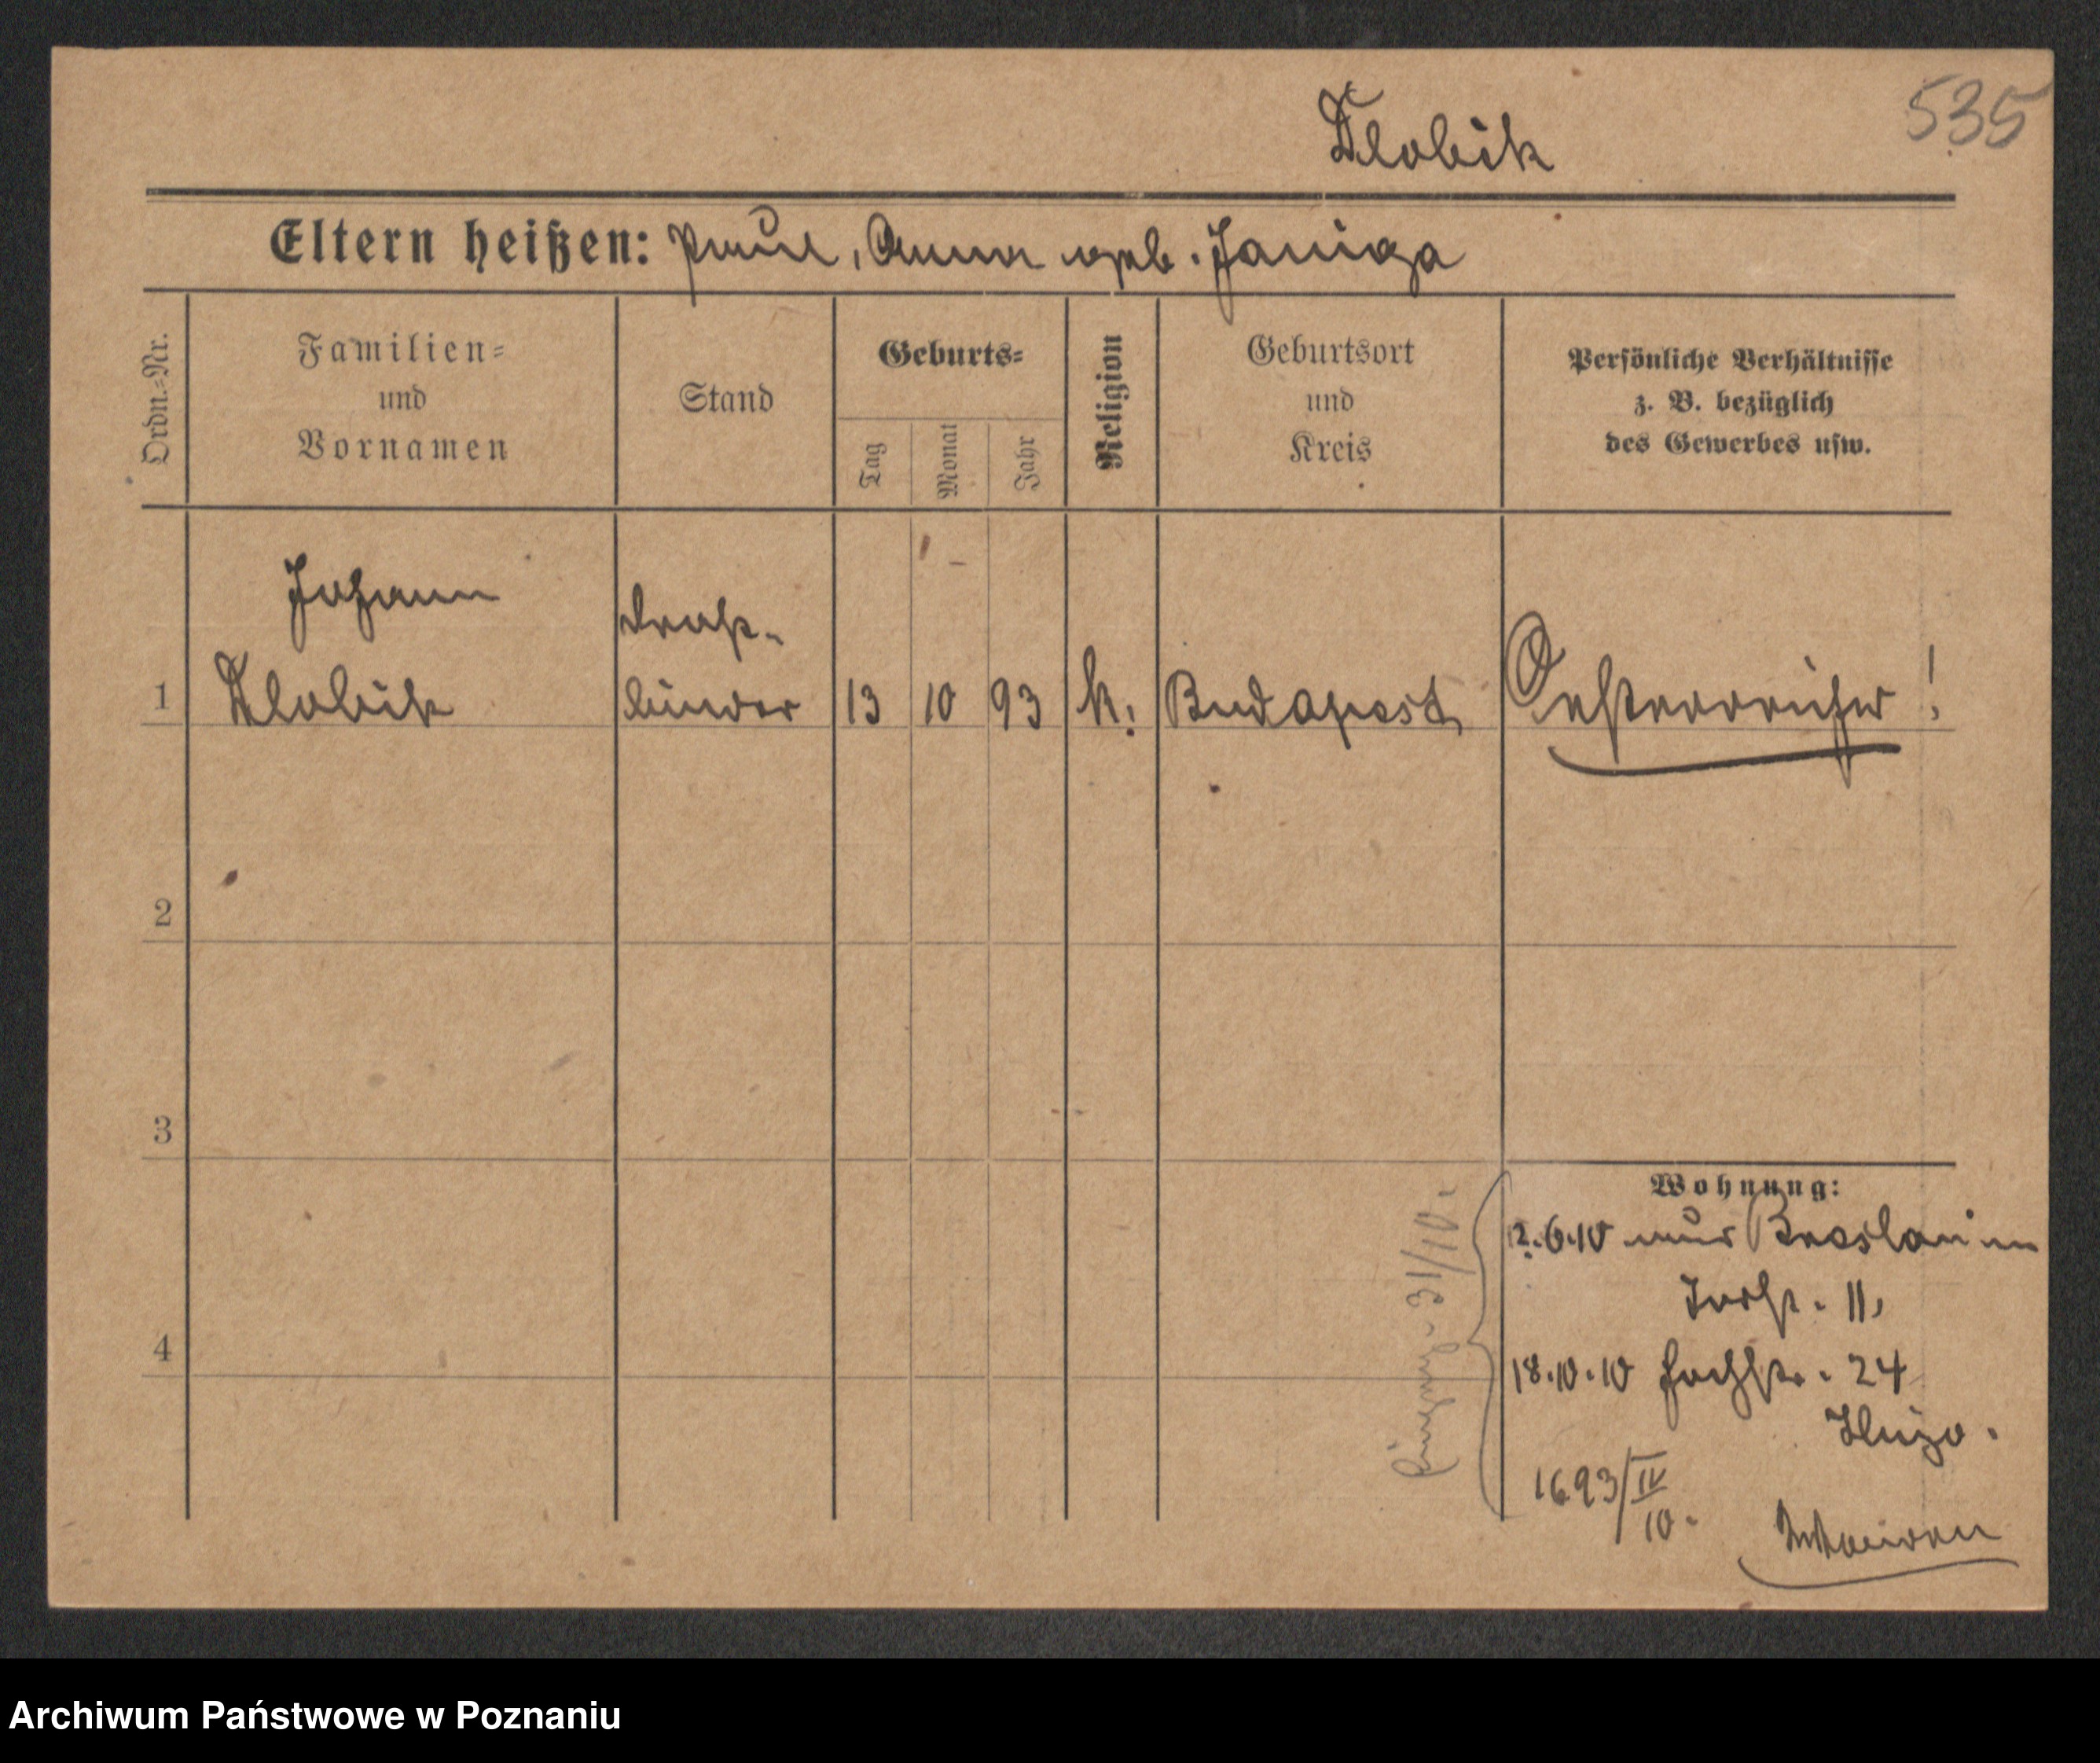 535
Dlobik
Eltern heißen: Paul, Anna geb. Janiga
Ordn.-Nr.
Familien-
und
Vornamen
Stand
Geburts-
Tag
Monat
Jahr
Religion
Geburtsort
und
Kreis
Persönliche Verhältnisse
z. B. bezüglich
des Gewerbes usw.
Johann
Draht-
1 Dlobik binder 13 10 93 k. Budapest Oesterreicher!
2
3
4
Wohnung:
2.6.10 aus Breslau in
Torstr. 11,
18.10.10 Fachstr. 24
31/10.
1693/IV
10.
Archiwum Państwowe w Poznaniu